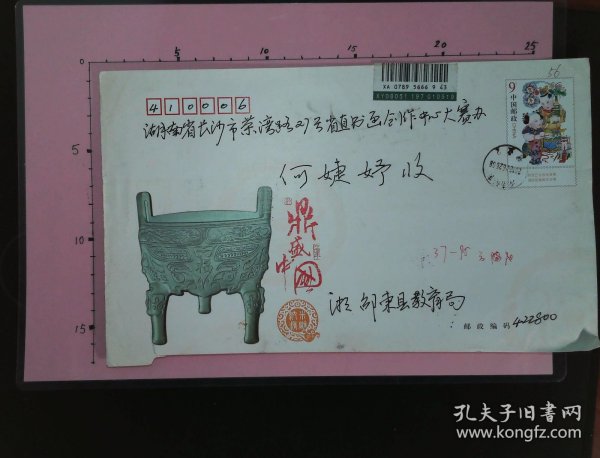 5 10 15 20 25
0
5
10
15
XA 0789 5666 9 43
56
9
中国邮政
410006
湖南省长沙市荣湾路27号省直书画创作中心大赛办
何婕妤收
鼎盛中国
37-95
湘邵东县教育局
邮政编码 422800
孔夫子旧书网
www.kongfz.com